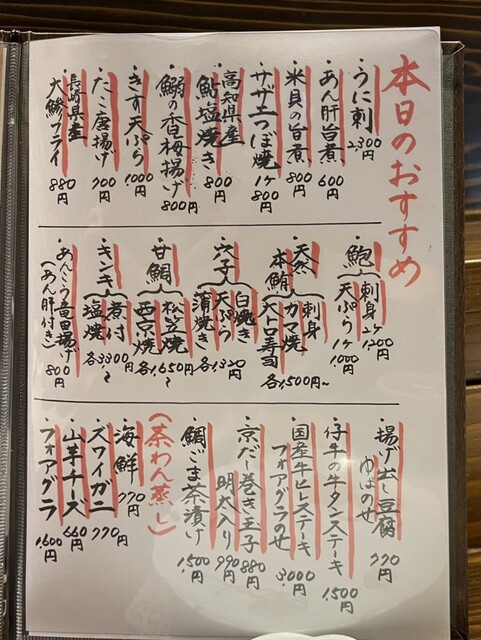 本日のおすすめ
・うに刺 2,300円
・あん肝旨煮 600円
・米貝の旨煮 800円
・サザエつぼ焼 1ケ 800円
・高知県産 鮎塩焼き 800円
・鰯の香梅揚げ 800円
・きす天ぷら 1000円
・たこ唐揚げ 700円
・長崎県産 大鯵フライ 880円
・鮑
刺身 2ケ 1200円
天ぷら 1ケ 1,000円
・天然本鮪
刺身
カマ焼
大トロ寿司
各1,500円~
・穴子
白焼き
天ぷら
蒲焼き
各1,320円
・甘鯛
松笠焼
西京焼
各1,650円~
・キンキ
煮付
塩焼
各3300円~
・あんこう竜田揚げ (あん肝付き) 800円
・揚げ出し豆腐 ゆばのせ 770円
・仔牛の牛タンステーキ 1,500円
・国産牛ヒレステーキ フォアグラのせ 3,000円
・京だし巻き玉子 880円
明太入り 990円
・鯛ごま茶漬け 1,500円
(茶わん蒸し)
・海鮮 770円
・ズワイガニ 770円
・山芋チーズ 660円
・フォアグラ 1,600円